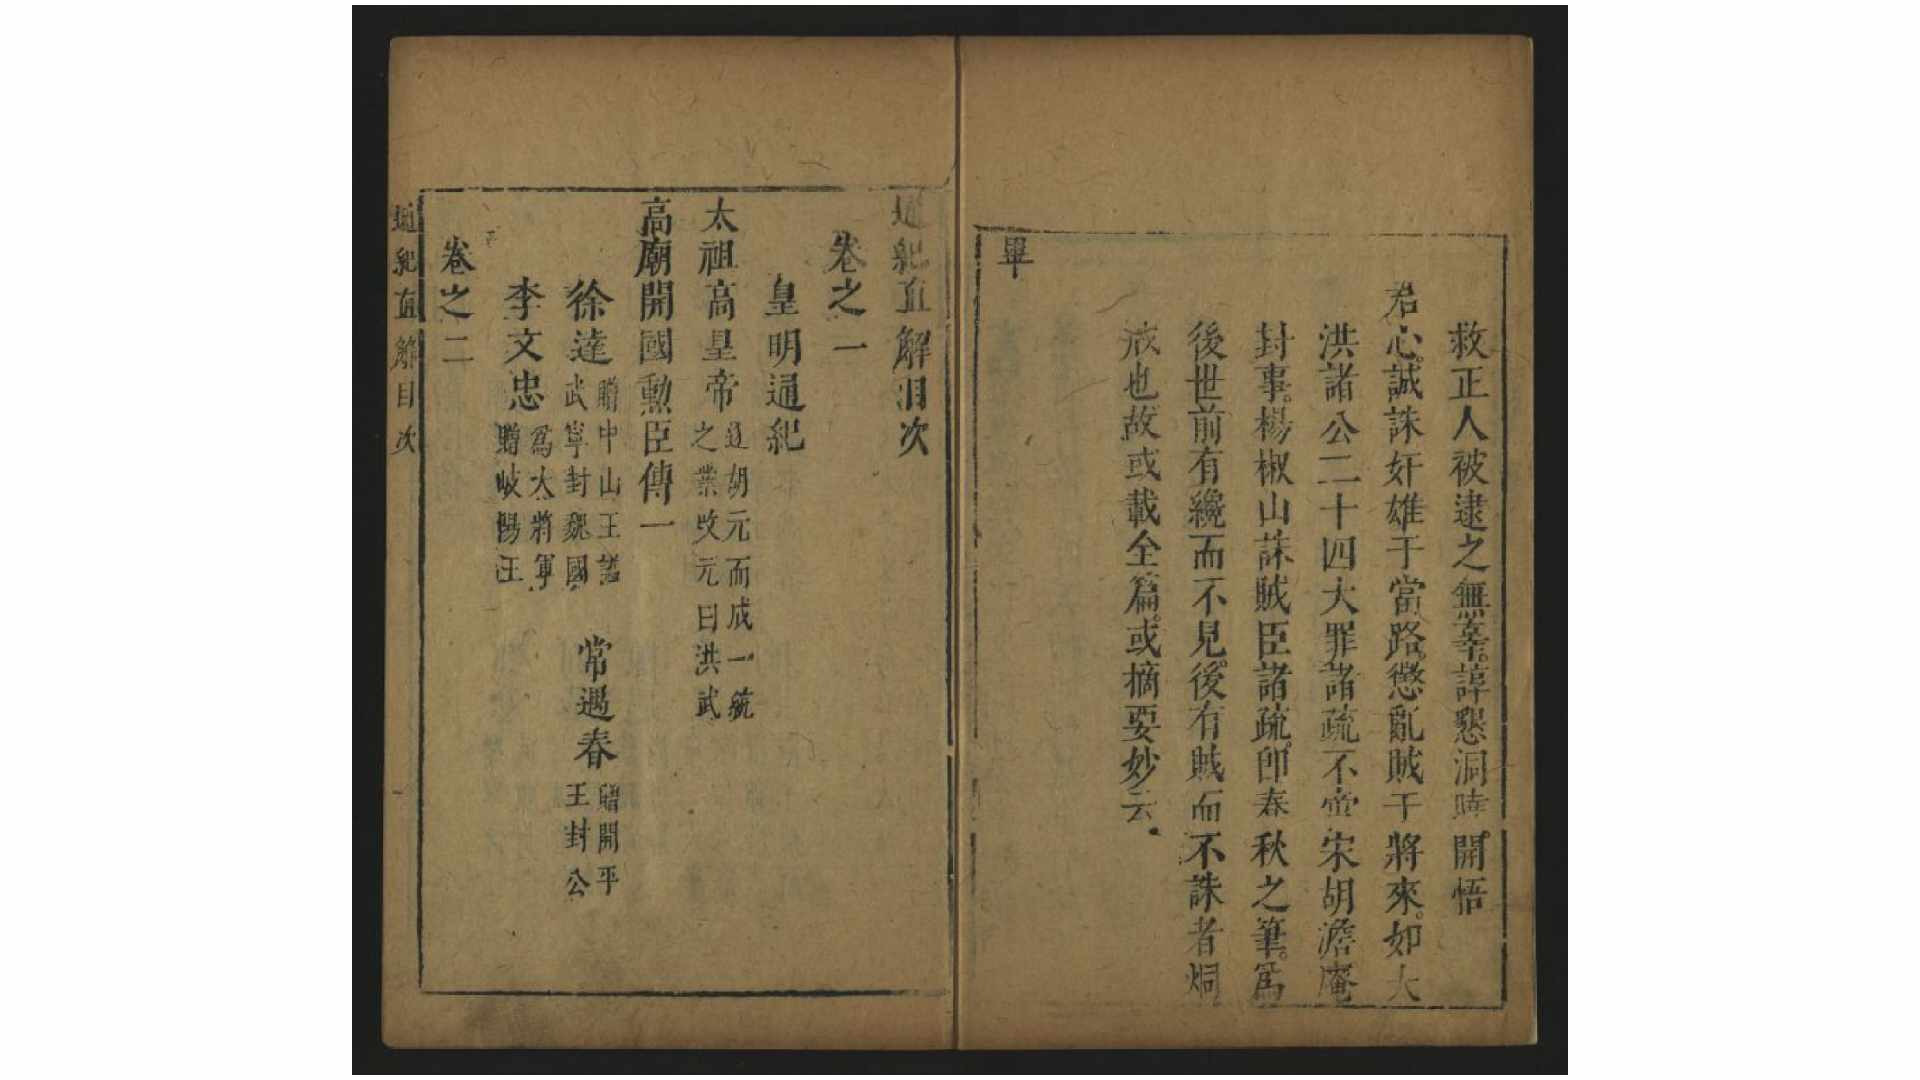 救正人被逮之無辜諄懇洞暐開悟
君心誠誅奸雄于當路懲亂賊于將來如大
洪諸公二十四大罪諸疏不啻宋胡澹庵
封事楊椒山誅賊臣諸疏即春秋之筆爲
後世前有纔而不見後有賊而不誅者炯
戒也故或載全篇或摘要妙云
畢
通紀直解目次
卷之一
皇明通紀
太祖高皇帝
逐胡元而成一統
之業改元曰洪武
高廟開國勲臣傳一
徐達
贈中山王諡
武寧封魏國
常遇春
贈開平
王封公
李文忠
爲大將軍
贈岐陽王
卷之二
通紀直解目次